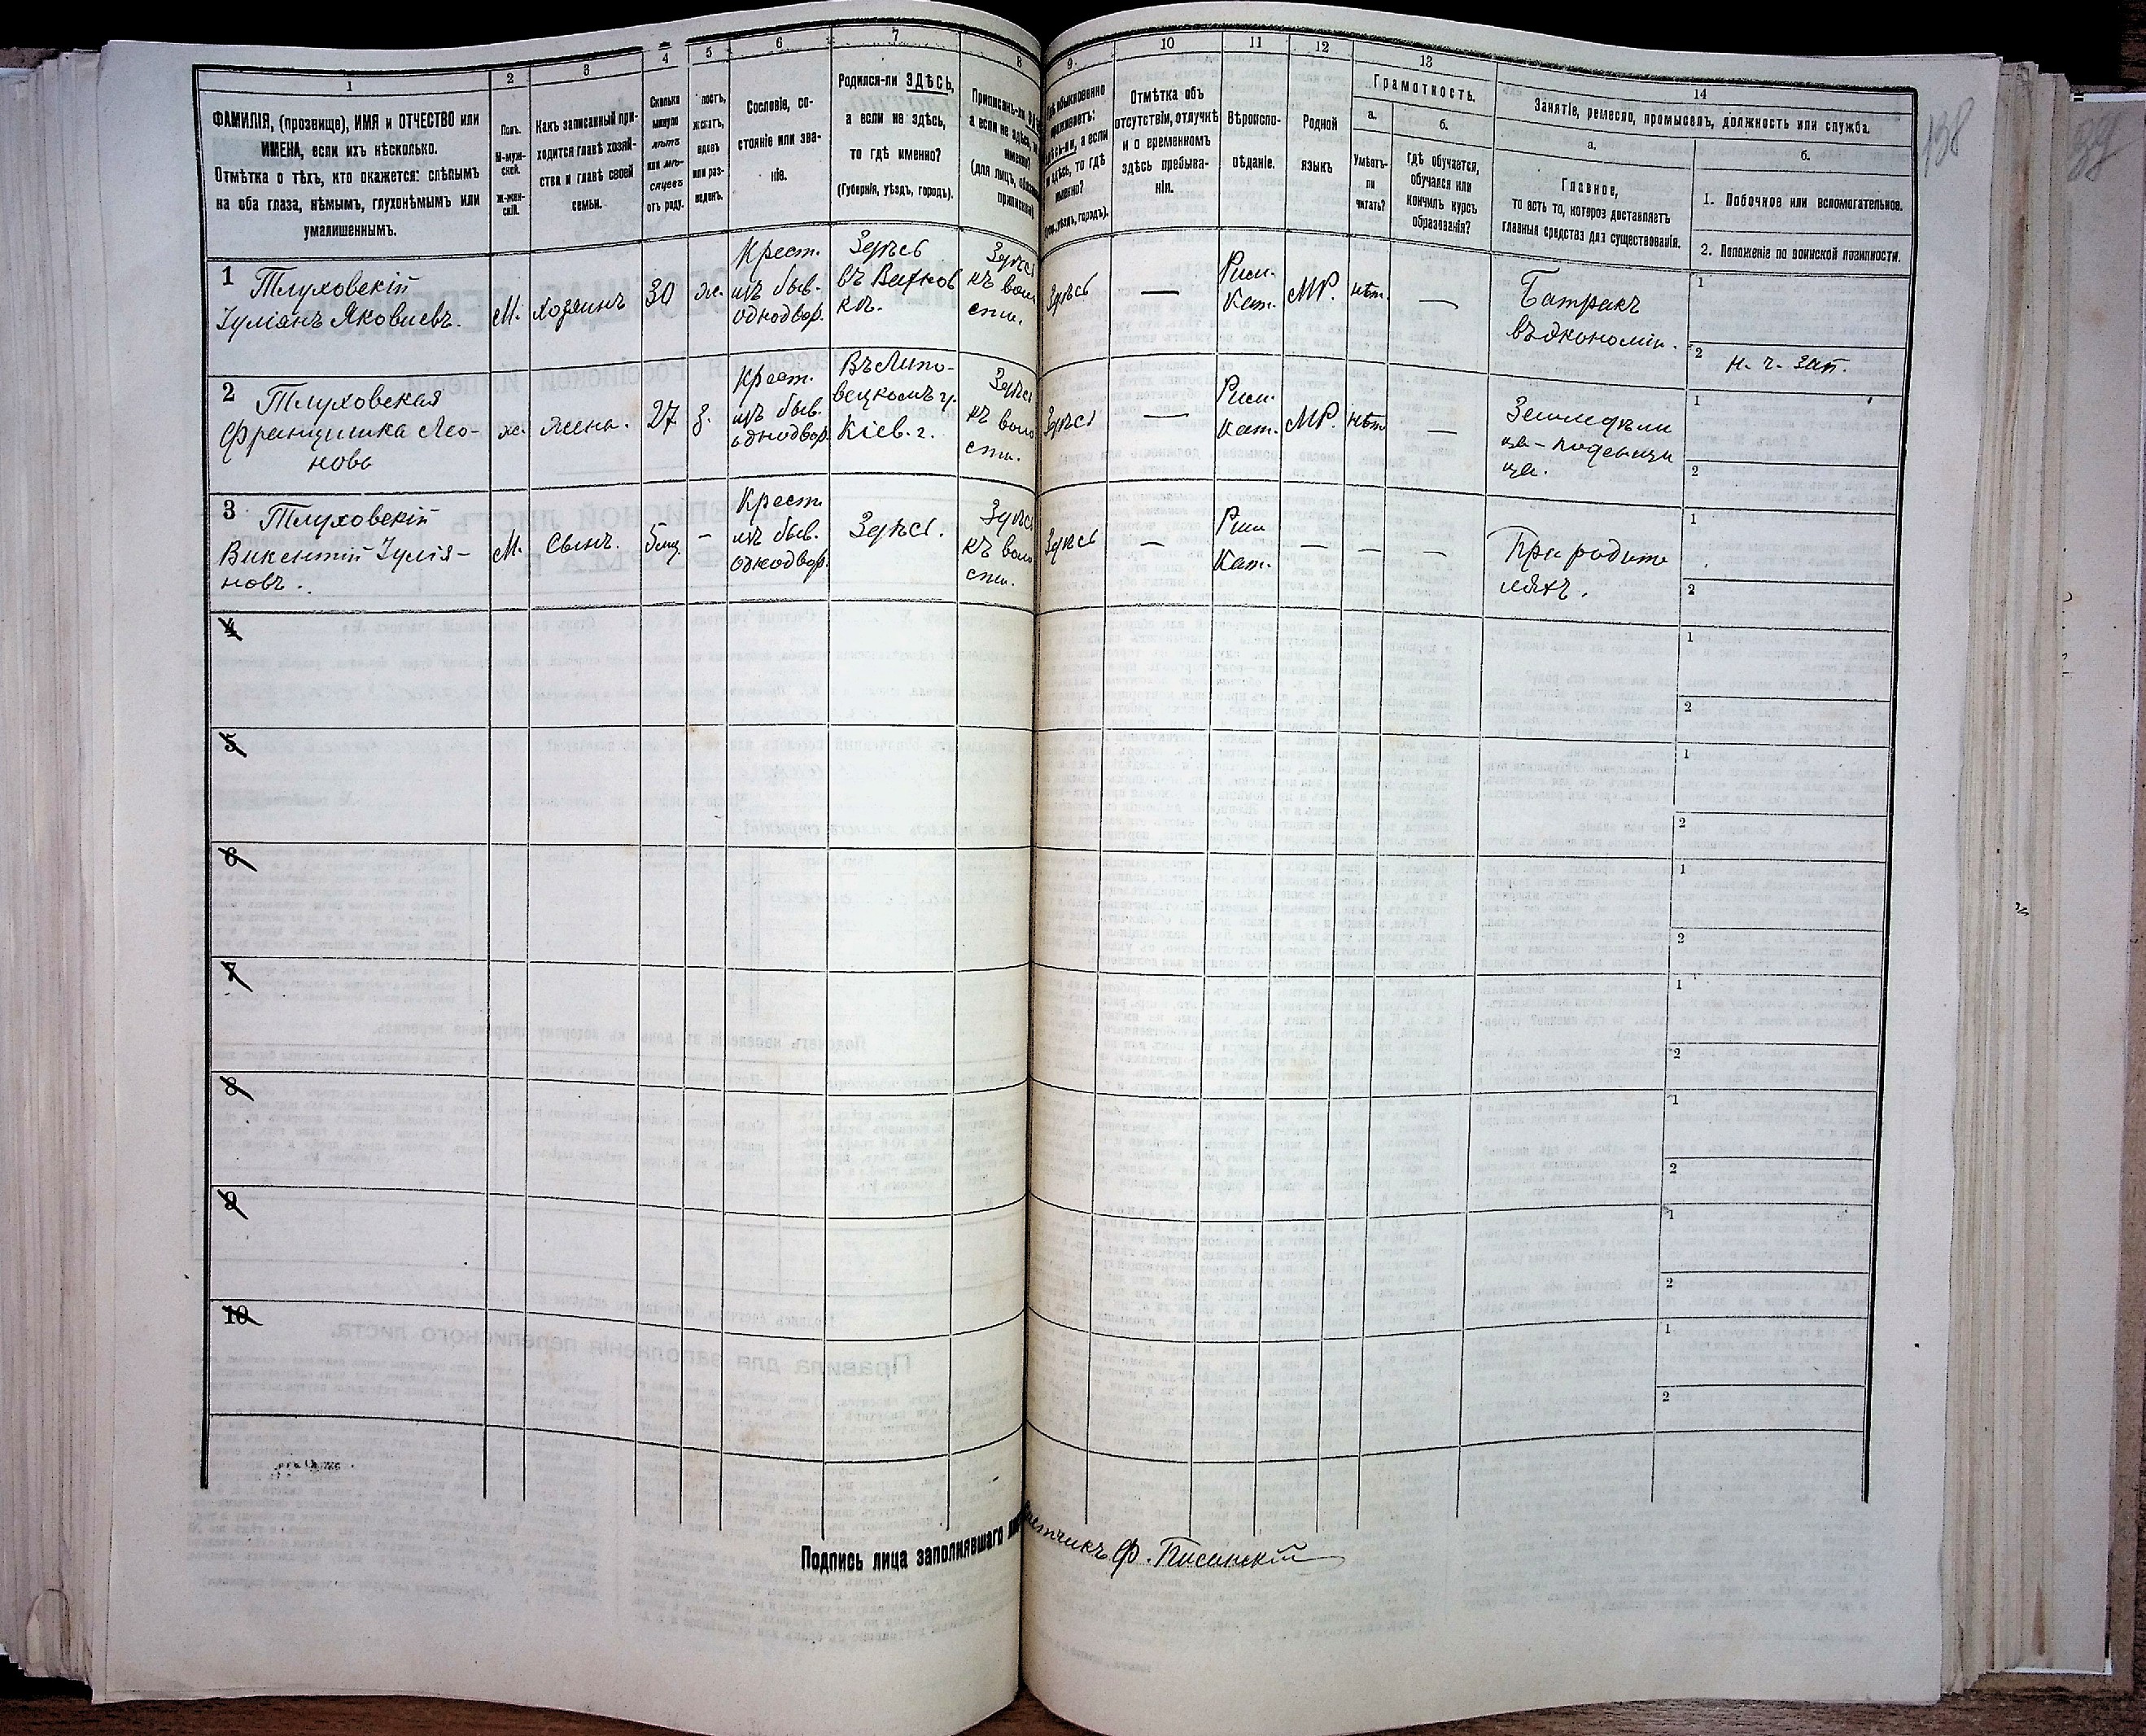 1
2
3
4
5
6
7
8
9.
10
11
12
13
14
ФАМИЛІЯ, (прозвище), ИМЯ и ОТЧЕСТВО или
ИМЕНА, если ихъ нѣсколько.
Отмѣтка о тѣхъ, кто окажется: слѣпымъ
на оба глаза, нѣмымъ, глухонѣмымъ или
умалишеннымъ.
Полъ.
М-муж-
ской.
Ж-жен-
скій.
Какъ записанный при-
ходится главѣ хозяй-
ства и главѣ своей
семьи.
Сколько
минуло
лѣтъ
или мѣ-
сяцевъ
отъ роду.
лостъ,
женатъ,
вдовъ
или раз-
веденъ.
Сословіе, со-
стояніе или зва-
ніе.
Родился-ли ЗДѢСЬ,
а если не здѣсь,
то гдѣ именно?
(Губернія, уѣздъ, городъ).
Приписанъ-ли
а если не здѣсь,
(для лицъ,
обыкновенно
а если
здѣсь, то гдѣ
именно?
уѣздъ, городъ).
Отмѣтка объ
отсутствіи, отлучкѣ
и о временномъ
здѣсь пребыва-
ніи.
Вѣроиспо-
вѣданіе.
Родной
языкъ
Грамотность.
а.
Умѣетъ-
ли
читать?
б.
Гдѣ обучается,
обучался или
кончилъ курсъ
образованія?
Занятіе, ремесло, промыселъ, должность или служба.
а.
Главное,
то есть то, которое доставляетъ
главныя средства для существованія.
б.
1. Побочное или вспомогательное.
2. Положеніе по воинской повинности.
138
1 Тлуховскій
Іуліанъ Яковлевъ.
М.
Хозяинъ
30
ж.
Крест.
изъ быв.
однодвор.
Здѣсь
Здѣсь
къ вол
сти.
Здѣсь
—
Рим.
Кат.
МР.
нѣт.
—
Батракъ
въ экономіи.
1
2 н. ч. зап.
2 Тлуховская
Францишка Лео-
нова
ж.
жена.
27
з.
Крест.
изъ быв.
однодвор.
Въ Липо-
вецкомъ у.
Кіев. г.
Здѣсь
къ воло
сти.
Здѣсь
—
Рим.
Кат.
МР.
нѣт
—
Земледѣли
ца-поденщи
ца.
1
2
3 Тлуховскій
Викентій Іулія-
новъ.
М.
Сынъ.
5 мц.
–
Крест.
изъ быв.
однодвор.
Здѣсь.
Здѣсь
къ воло
сти.
Здѣсь
—
Рим
Кат.
—
—
—
При родите
ляхъ.
1
2
4
1
2
5
1
2
6
1
2
7
1
2
8
1
2
9
1
2
10
1
2
Подпись лица заполнявшаго
Счетчикъ Ф.